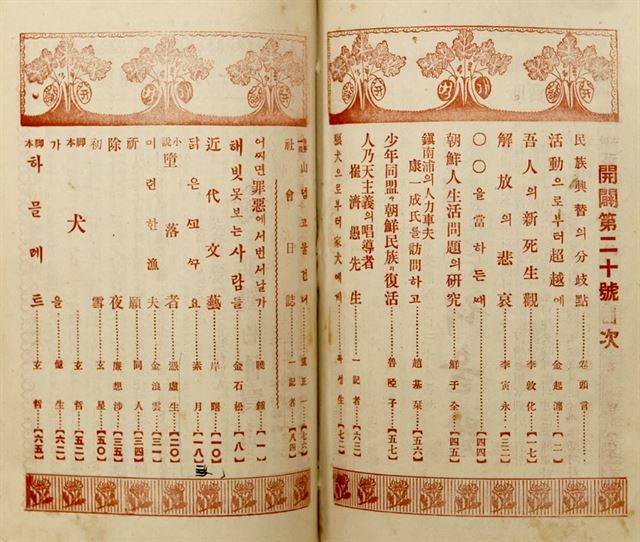 開闢第二十號目次
民族興替의分岐點…………卷頭言…
活動으로부터超越에………金起瀍…【二】
吾人의新死生觀…………李敦化…【一七】
解放의悲哀…………李寅永…【三一】
〇〇을當하든때…………【四四】
朝鮮人生活問題의硏究…………鮮于全…【四五】
鎭南浦의人力車夫
康一成氏를訪問하고…………趙基栞…【五六】
少年同盟과朝鮮民族의復活…………魯啞子…【五七】
人乃天主義의唱導者
崔濟愚先生…………一記者…【六三】
犬으로부터家犬에게…………【七二】
山넘고물건너…………【七六】
社會日誌…………一記者…【八四】
어찌면罪惡에서번서날가…………曉鍾…【一】
해빗못보는사람들…………金石松…【八】
近代文藝…………岸曙…【一〇】
닭은꼬꾸요…………素月…【一八】
小說 墮落者…………憑虛生…【二〇】
미련한漁夫…………金浪雲…【三一】
祈願…………同人…【三四】
除夜…………廉想涉…【三五】
初雪…………玄星…【五〇】
脚本 犬…………玄哲…【五二】
가을…………生…【六二】
脚本 하믈레트…………玄哲…【六五】